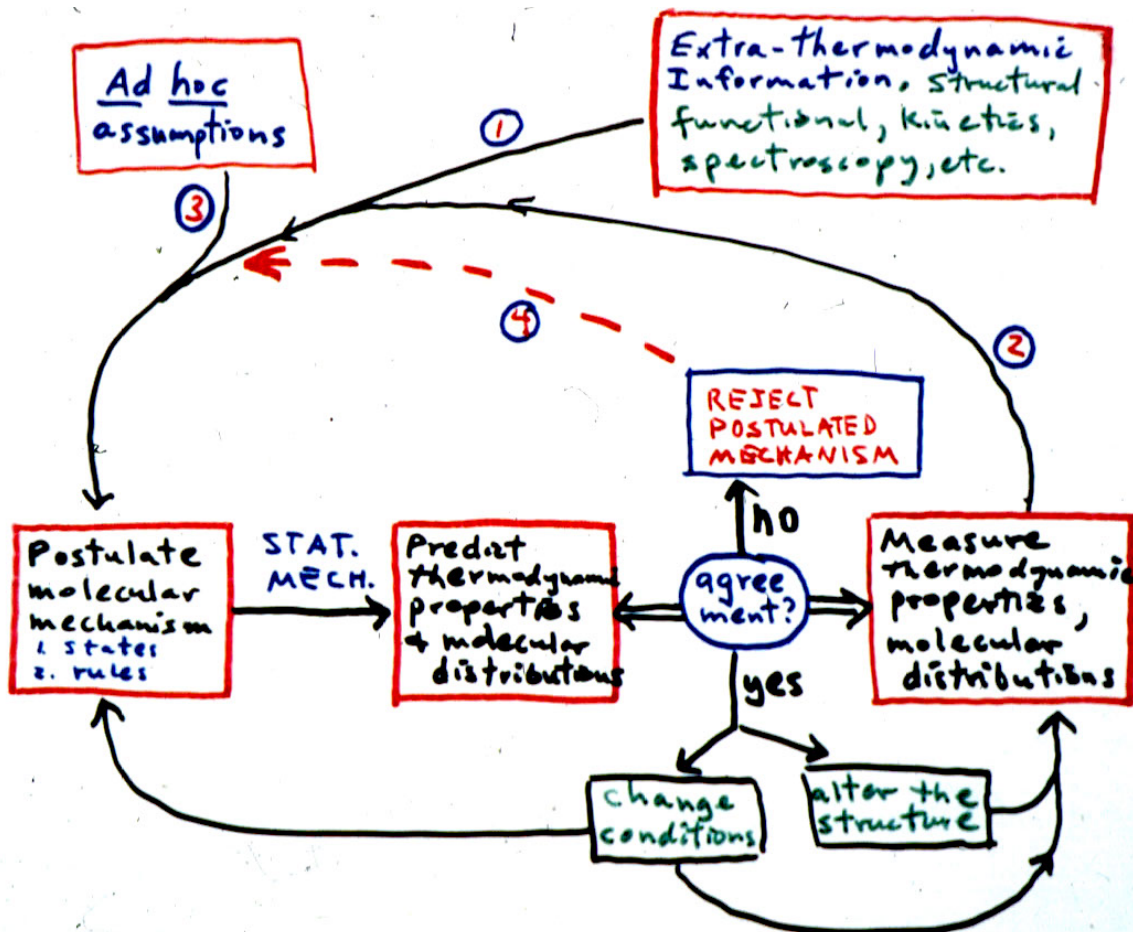 Ad hoc
assumptions
Extra-thermodynamic
Information. Structural
functional, kinetics,
spectroscopy, etc.
1
3
4
2
REJECT
POSTULATED
MECHANISM
no
Postulate
molecular
mechanism
1. states
2. rules
STAT.
MECH.
Predict
thermodynamic
properties
& molecular
distributions
agree
ment?
Measure
thermodynamic
properties,
molecular
distributions
yes
change
conditions
alter the
structure